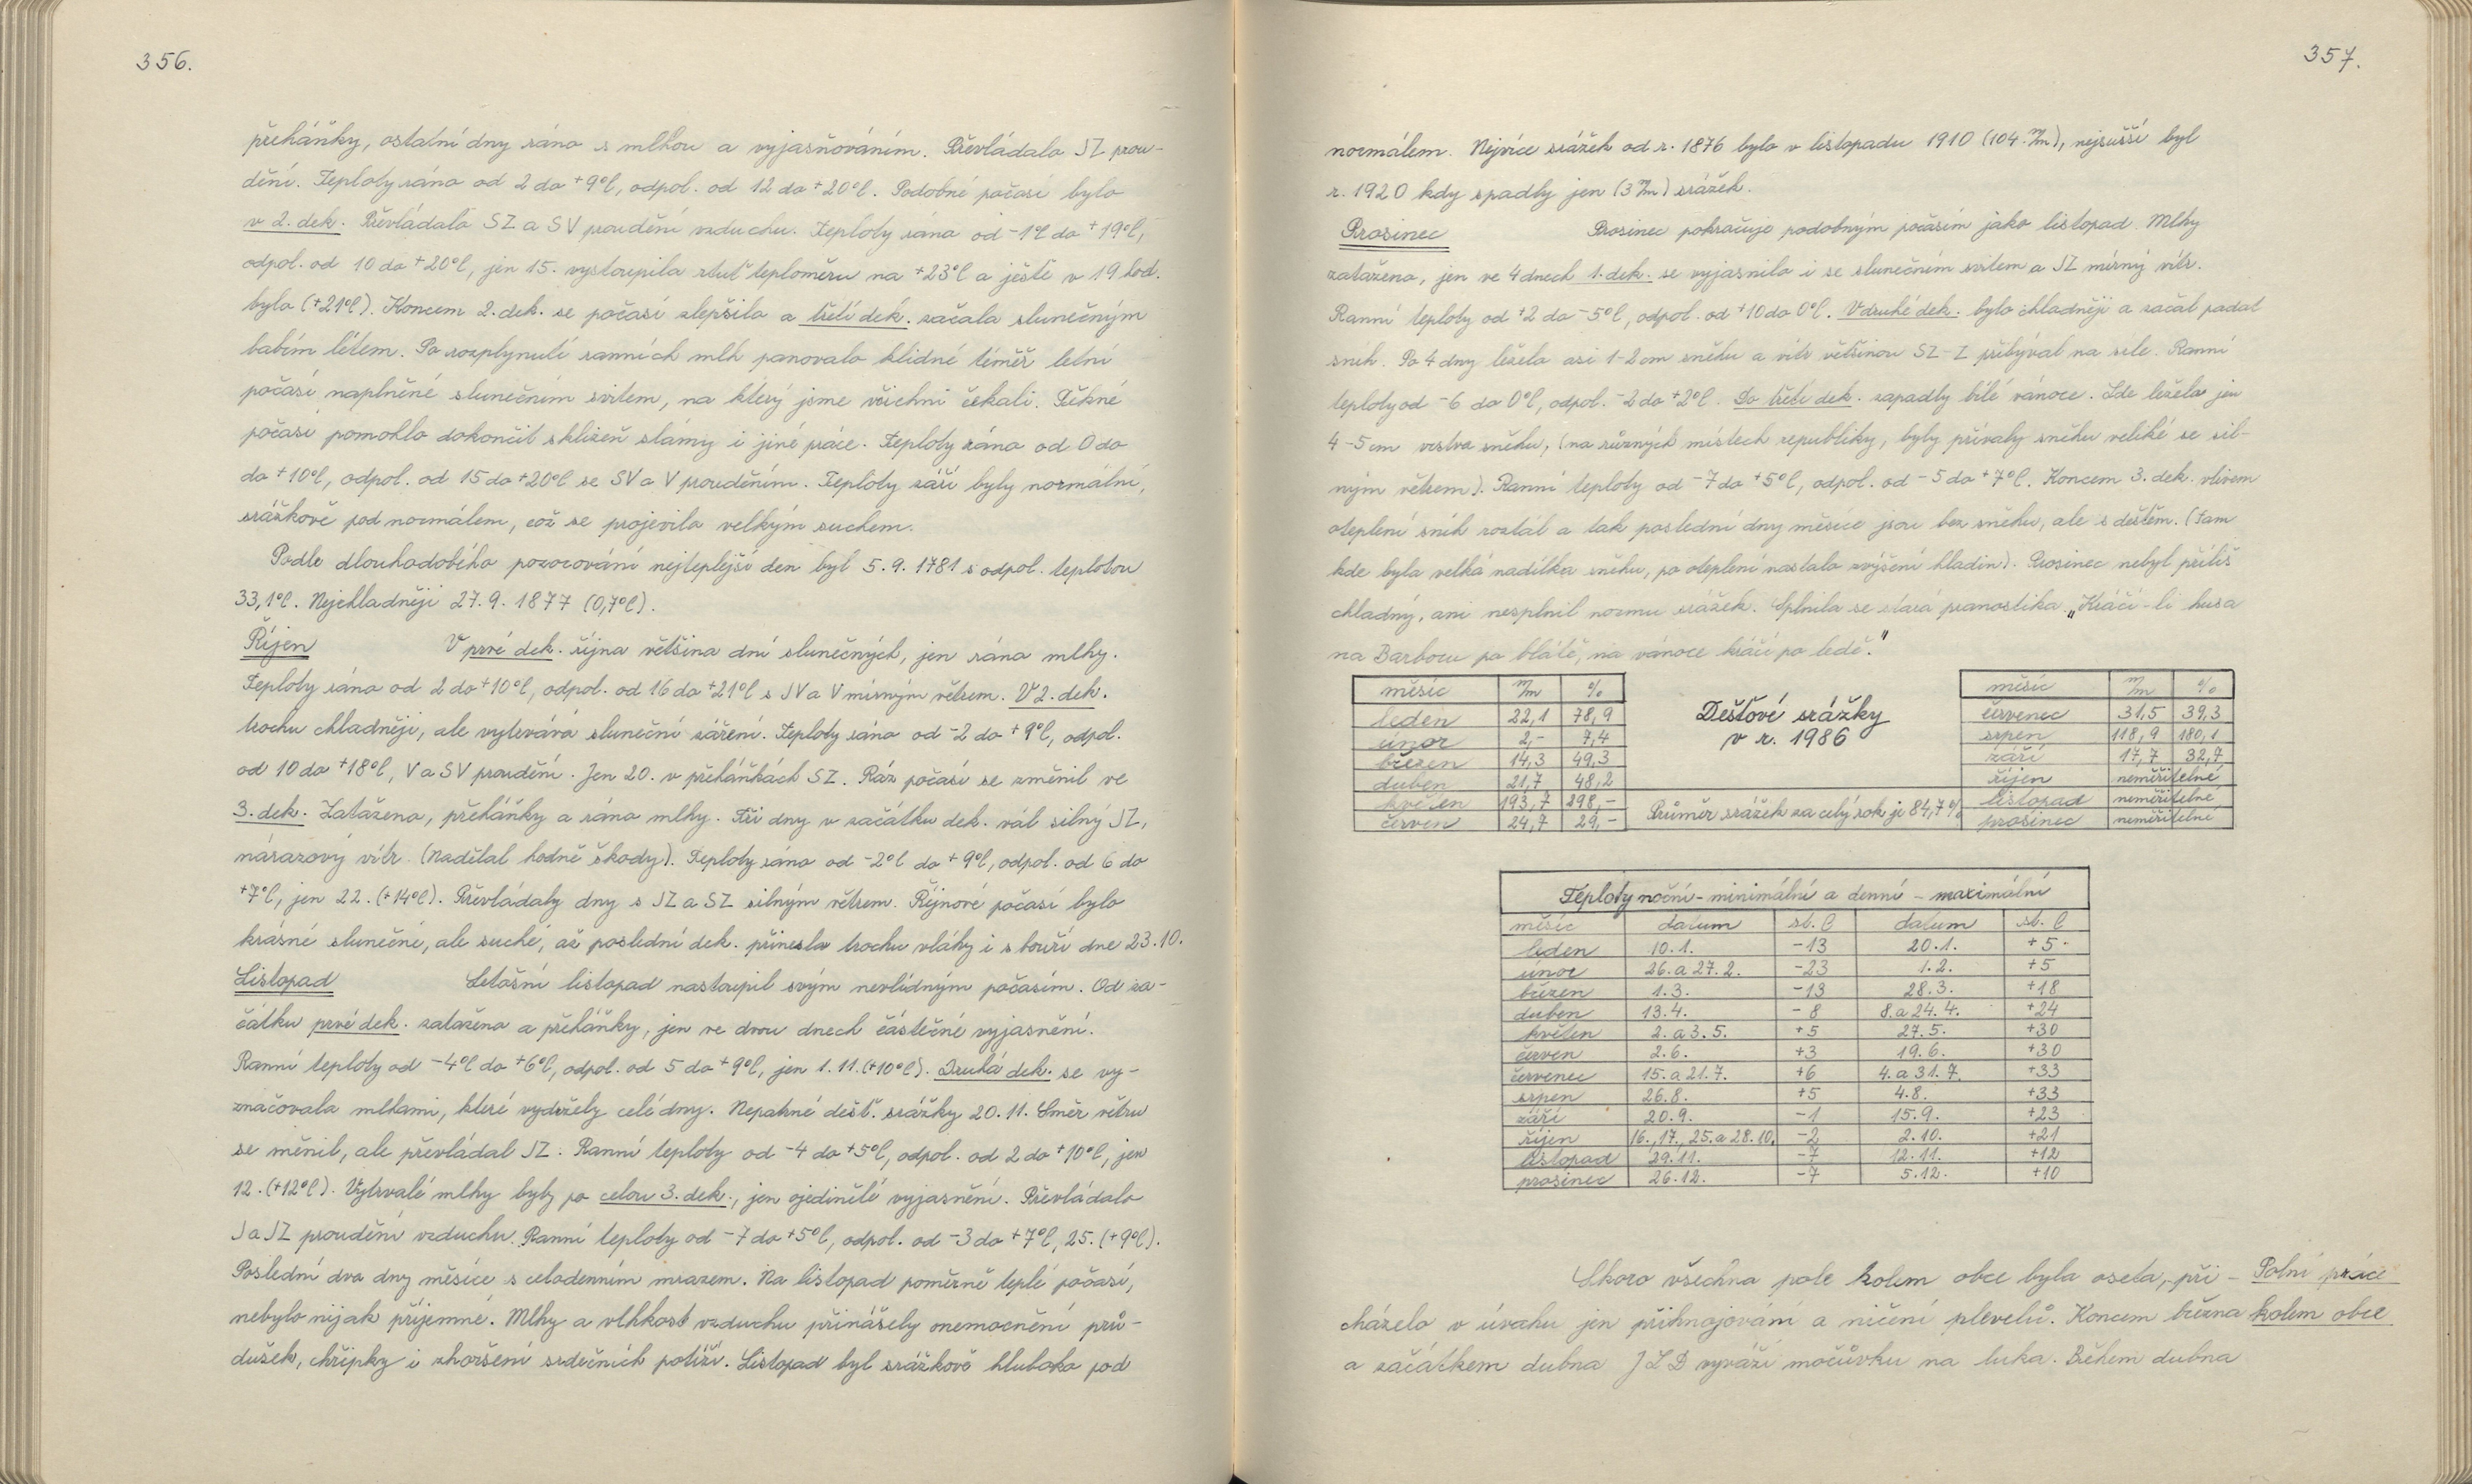 356.
přeháňky, ostatní dny ráno s mlhou a vyjasňováním. Převládalo JZ prou-
dění. Teploty ráno od 2 do +9°C, odpol. od 12 do +20°C. Podobné počasí bylo
v 2. dek. Převládalo SZ a SV proudění vzduchu. Teploty ráno od -1°C do +19°C,
odpol. od 10 do +20°C, jen 15. vystoupila rtuť teploměru na +23°C a ještě v 19 hod.
bylo (+21°C). Koncem 2. dek. se počasí zlepšilo a třetí dek. začala slunečným
babím létem. Po rozplynutí ranních mlh panovalo klidné téměř letní
počasí naplněné slunečním svitem, na který jsme všichni čekali. Pěkné
počasí pomohlo dokončit sklizeň slámy i jiné práce. Teploty ráno od 0 do
do +10°C, odpol. od 15 do +20°C se SV a V prouděním. Teploty září byly normální,
srážkově pod normálem, což se projevilo velkým suchem.
Podle dlouhodobého pozorování nejteplejší den byl 5.9.1781 s odpol. teplotou
33,1°C. Nejchladněji 27.9.1877 (0,7°C).
Říjen V prvé dek. října většina dní slunečných, jen ráno mlhy.
Teploty ráno od 2 do +10°C, odpol. od 16 do +21°C s JV a V mírným větrem. V 2. dek.
trochu chladněji, ale vytrvává sluneční záření. Teploty ráno od -2 do +9°C, odpol.
od 10 do +18°C, V a SV proudění. Jen 20. v přeháňkách SZ. Ráz počasí se změnil ve
3. dek. Zataženo, přeháňky a ráno mlhy. Tři dny v začátku dek. vál silný JZ,
nárazový vítr. (Nadělal hodně škody). Teploty ráno od -2°C do +9°C, odpol. od 6 do
+7°C, jen 22. (+14°C). Převládaly dny s JZ a SZ silným větrem. Říjnové počasí bylo
krásné slunečné, ale suché, až poslední dek. přinesla trochu vláhy i s bouří dne 23.10.
Listopad Letošní listopad nastoupil svým nevlídným počasím. Od za-
čátku prvé dek. zataženo a přeháňky, jen ve dvou dnech částečné vyjasnění.
Ranní teploty od -4°C do +6°C, odpol. od 5 do +9°C, jen 1.11. (+10°C). Druhá dek. se vy-
značovala mlhami, které vydržely celé dny. Nepatrné dešť. srážky 20.11. Směr větru
se měnil, ale převládal JZ. Ranní teploty od -4 do +5°C, odpol. od 2 do +10°C, jen
12. (+12°C). Vytrvalé mlhy byly po celou 3. dek., jen ojedinělé vyjasnění. Převládalo
J a JZ proudění vzduchu. Ranní teploty od -7 do +5°C, odpol. od -3 do +7°C, 25. (+9°C).
Poslední dva dny měsíce s celodenním mrazem. Na listopad poměrně teplé počasí,
nebylo nijak příjemné. Mlhy a vlhkost vzduchu přinášely onemocnění prů-
dušek, chřipky i zhoršení srdečních potíží. Listopad byl srážkově hluboko pod
357.
normálem. Nejvíce srážek od r. 1876 bylo v listopadu 1910 (104 m/m), nejsušší byl
r. 1920 kdy spadly jen (3 m/m) srážek.
Prosinec Prosinec pokračuje podobným počasím jako listopad. Mlhy
zataženo, jen ve 4 dnech 1. dek. se vyjasnilo i se slunečním svitem a JZ mírný vítr.
Ranní teploty od +2 do -5°C, odpol. od +10 do 0°C. V druhé dek. bylo chladněji a začal padat
sníh. Po 4 dny leželo asi 1-2 cm sněhu a vítr většinou SZ-Z přibýval na síle. Ranní
teploty od -6 do 0°C, odpol. -2 do +2°C. Do třetí dek. zapadly bílé vánoce. Zde ležela jen
4-5 cm vrstva sněhu, (na různých místech republiky, byly přívaly sněhu veliké se sil-
ným větrem). Ranní teploty od -7 do +5°C, odpol. od -5 do +7°C. Koncem 3. dek. vlivem
oteplení sníh roztál a tak poslední dny měsíce jsou bez sněhu, ale s deštěm. (Tam
kde byla velká nadílka sněhu, po oteplení nastalo zvýšení hladin). Prosinec nebyl příliš
chladný, ani nesplnil normu srážek. Splnila se stará pranostika „Kráčí-li husa
na Barboru po blátě, na vánoce kráčí po ledě."
měsíc m/m %
leden 22,1 78,9
únor 2,- 7,4
březen 14,3 49,3
duben 21,7 48,2
květen 193,7 298,-
červen 24,7 29,-
Dešťové srážky
v r. 1986
Průměr srážek za celý rok je 84,7%
měsíc m/m %
červenec 31,5 39,3
srpen 118,9 180,1
září 17,7 32,7
říjen neměřitelné
listopad neměřitelné
prosinec neměřitelné
Teploty noční - minimální a denní - maximální
měsíc datum st. C datum st. C
leden 10.1. -13 20.1. +5
únor 26. a 27.2. -23 1.2. +5
březen 1.3. -13 28.3. +18
duben 13.4. -8 8. a 24.4. +24
květen 2. a 3.5. +5 27.5. +30
červen 2.6. +3 19.6. +30
červenec 15. a 21.7. +6 4. a 31.7. +33
srpen 26.8. +5 4.8. +33
září 20.9. -1 15.9. +23
říjen 16., 17., 25. a 28.10. -2 2.10. +21
listopad 29.11. -7 12.11. +12
prosinec 26.12. -7 5.12. +10
Skoro všechna pole kolem obce byla oseta, při- Polní práce
cházelo v úvahu jen přihnojování a ničení plevelů. Koncem března kolem obce
a začátkem dubna JZD vyváží močůvku na luka. Během dubna